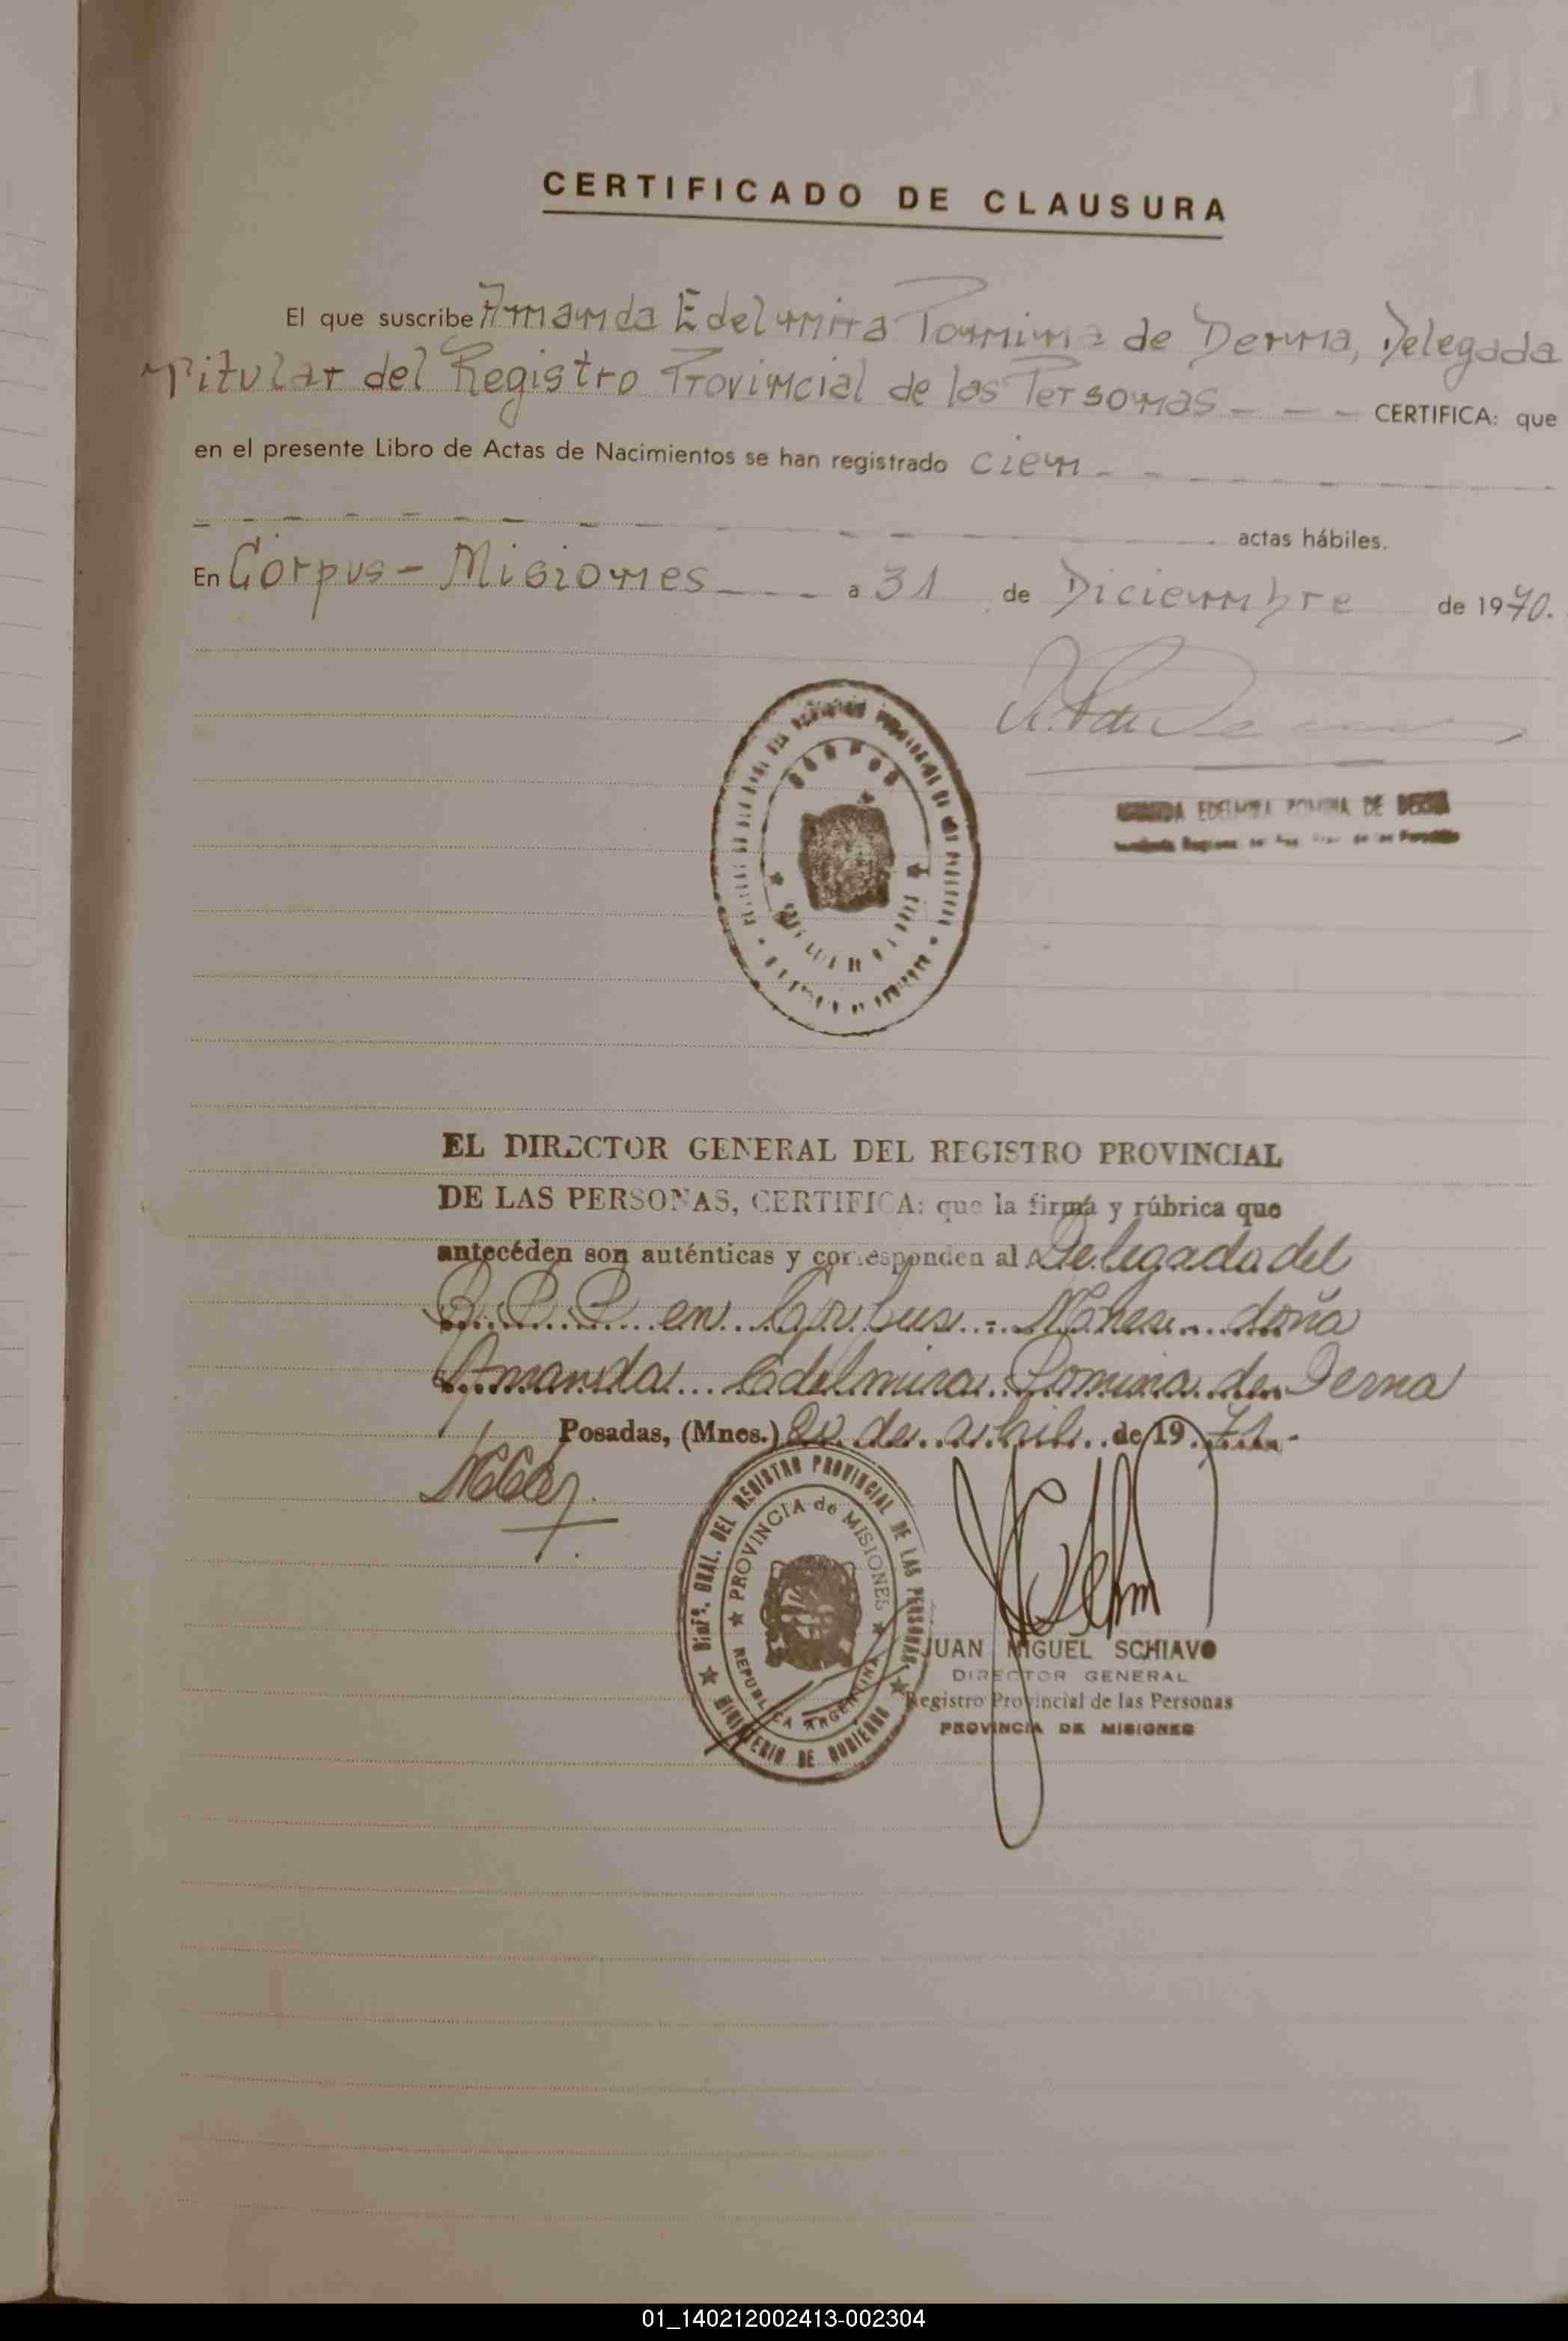 CERTIFICADO DE CLAUSURA
El que suscribe Amanda Edelmira Pomina de Derna, Delegada
Titular del Registro Provincial de las Personas - - - CERTIFICA: que
en el presente Libro de Actas de Nacimientos se han registrado cien - -
actas hábiles.
En Corpus - Misiones - - - a 31 de Diciembre de 1970.
CORPUS
EDELMIRA POMINA DE DERNA
EL DIRECTOR GENERAL DEL REGISTRO PROVINCIAL
DE LAS PERSONAS, CERTIFICA: que la firma y rúbrica que
antecéden son auténticas y corresponden al Delegada del
R. P. P. en Corpus - Mnes. doña
Amanda Edelmira Pomina de Derna
Posadas, (Mnes.) 20 de abril de 1971.-
DIRe. GRAL. DEL REGISTRO PROVINCIAL DE LAS PERSONAS
PROVINCIA de MISIONES
REPUBLICA ARGENTINA
MINISTERIO DE GOBIERNO
JUAN MIGUEL SCHIAVO
DIRECTOR GENERAL
Registro Provincial de las Personas
PROVINCIA DE MISIONES
01_140212002413-002304